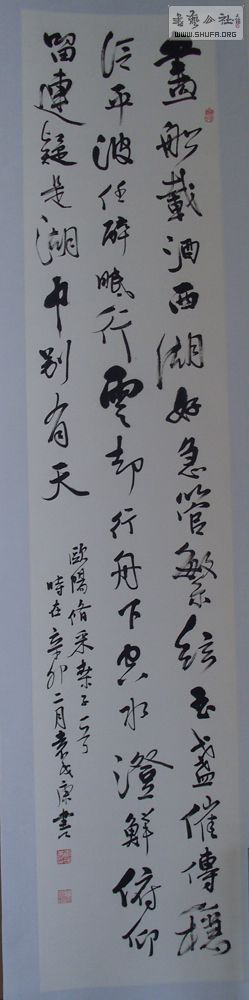 書藝公社
WWW.SHUFA.ORG
畫船載酒西湖好急管繁絃玉盞催傳穩
泛平波任醉眠行雲却行舟下空水澄鮮俯仰
留連疑是湖中別有天
歐陽脩采桑子一
時在辛卯二月袁康書